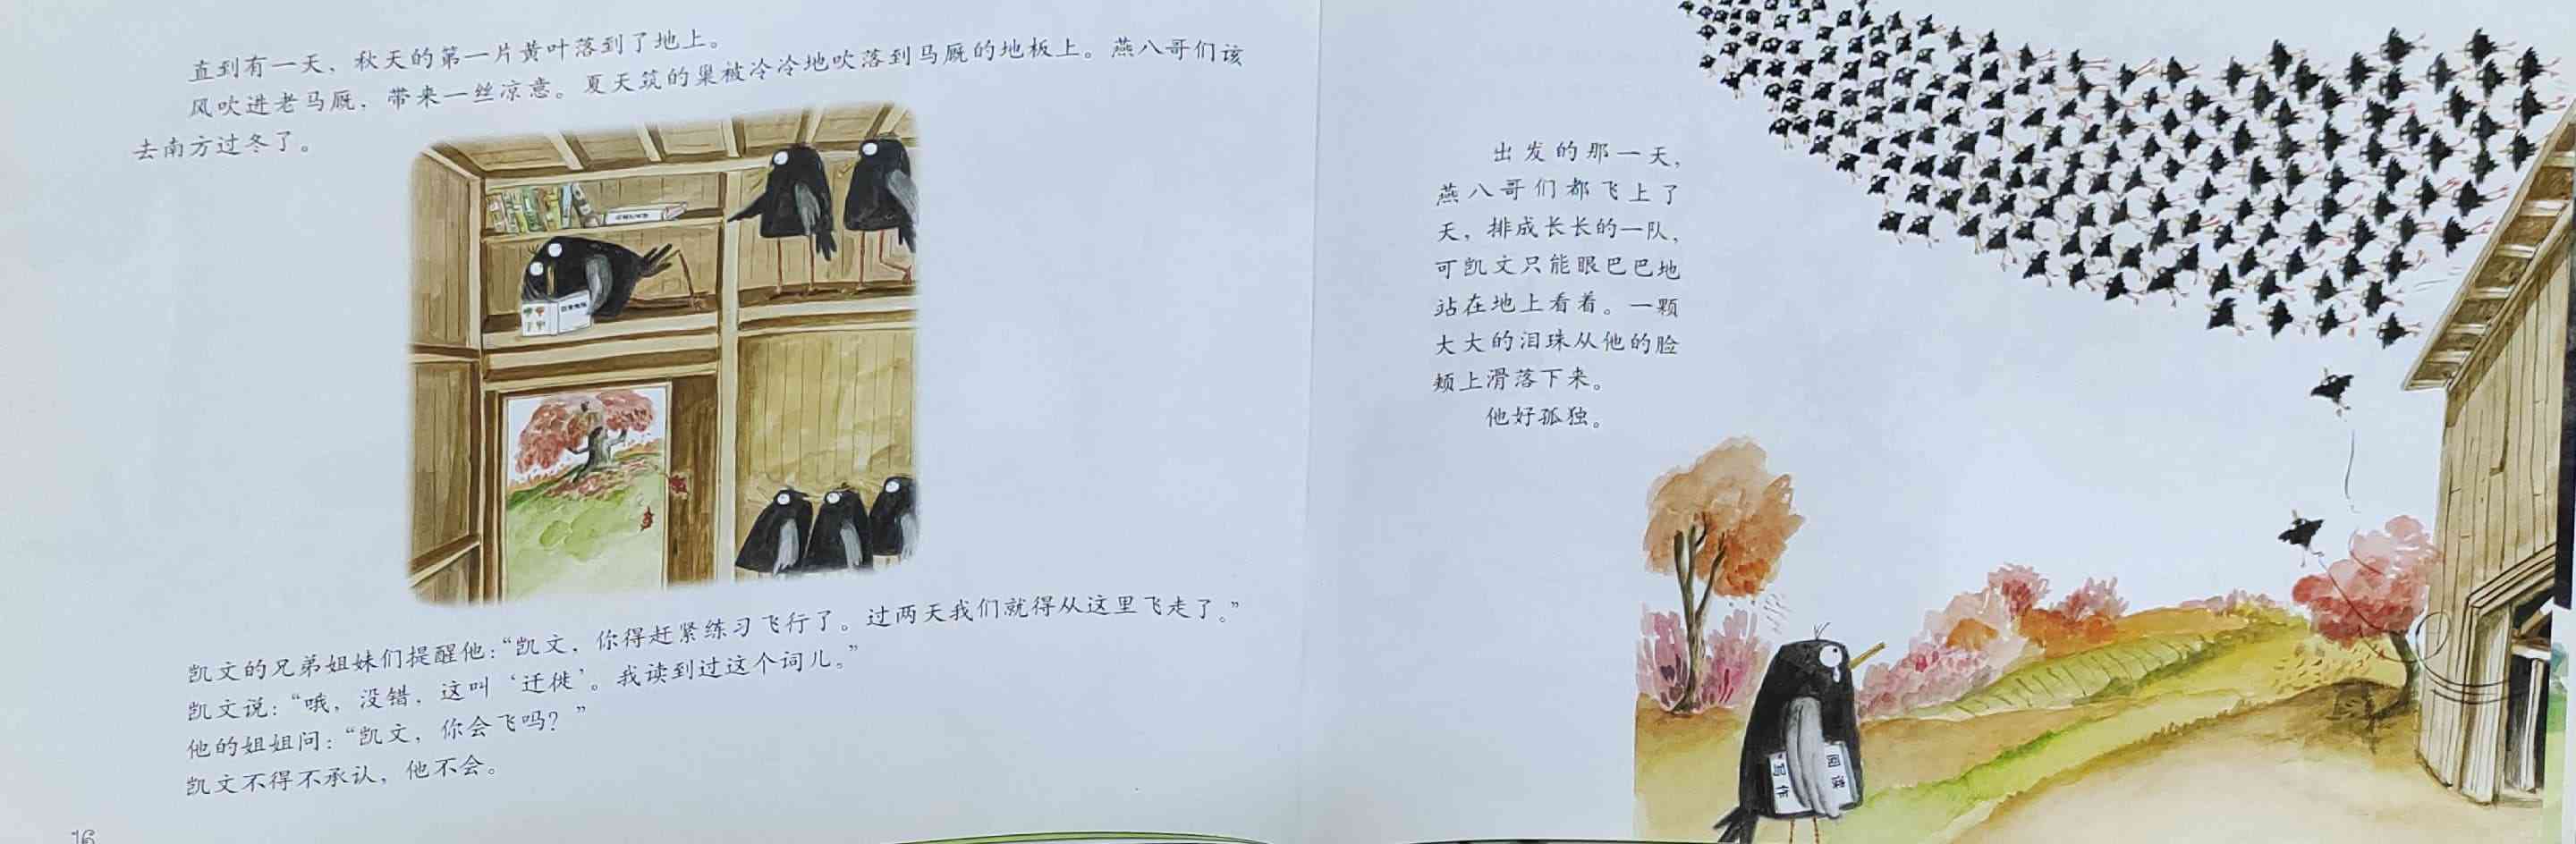 直到有一天，秋天的第一片黄叶落到了地上。
风吹进老马厩，带来一丝凉意。夏天筑的巢被冷冷地吹落到马厩的地板上。燕八哥们该
去南方过冬了。
凯文的兄弟姐妹们提醒他：“凯文，你得赶紧练习飞行了。过两天我们就得从这里飞走了。”
凯文说：“哦，没错，这叫‘迁徙’。我读到过这个词儿。”
他的姐姐问：“凯文，你会飞吗？”
凯文不得不承认，他不会。
16
出发的那一天，
燕八哥们都飞上了
天，排成长长的一队，
可凯文只能眼巴巴地
站在地上看着。一颗
大大的泪珠从他的脸
颊上滑落下来。
他好孤独。
阅读
写作